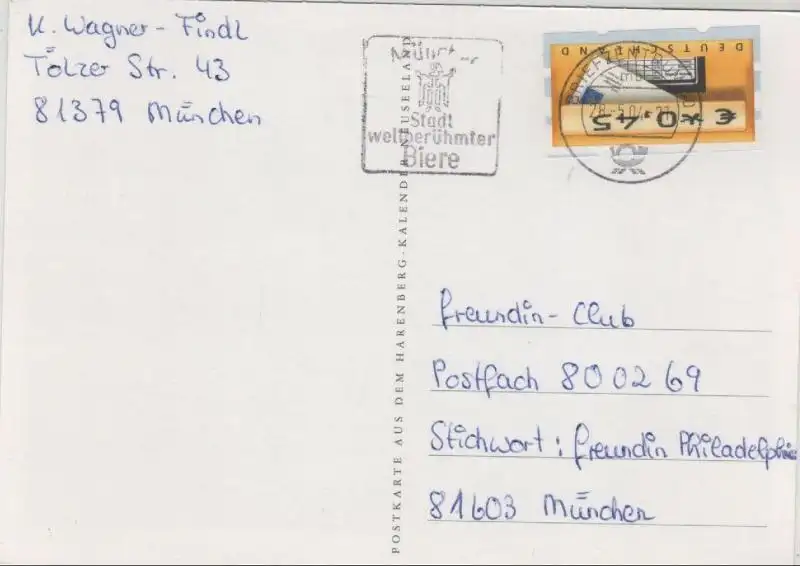 K. Wagner-Findl
Tölzer Str. 43
81379 München
Stadt
weltberühmter
Biere
DEUTSCHLAND
€ *0,45
BRIEFZEN
28.-5.04
POSTKARTE AUS DEM HARENBERG-KALENDER NEUSEELAND
freundin-Club
Postfach 80 02 69
Stichwort: freundin Philadelphia
81603 München